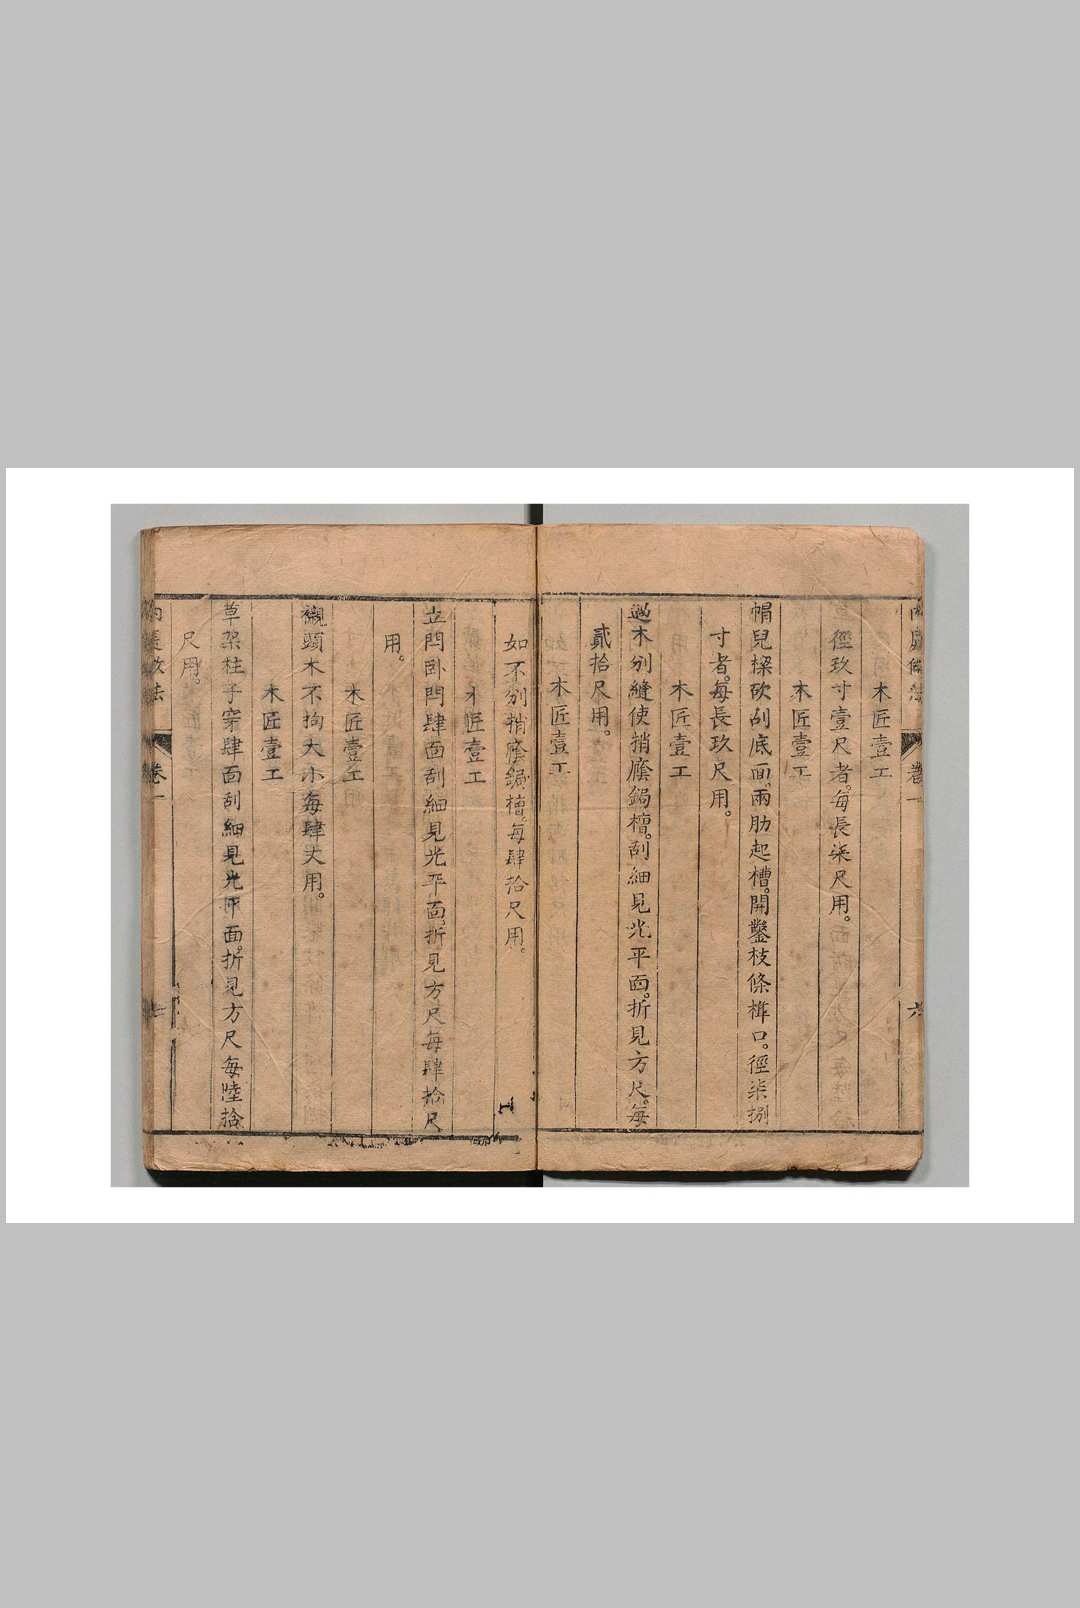 木匠壹工
徑玖寸壹尺者。每長柒尺用。
木匠壹工
帽兒樑砍刮底面，兩肋起槽。開鑿枝條榫口。徑柒捌
寸者。每長玖尺用。
木匠壹工
過木別縫使捎廕鋦檜。刮細見光平面。折見方尺。每
貳拾尺用。
木匠壹工
如不別捎廕鋦檜。每肆拾尺用。
木匠壹工
立閂臥閂肆面刮細見光平面，折見方尺每肆拾尺
用。
木匠壹工
襯頭木不拘大小每肆丈用。
木匠壹工
草架柱子穿肆面刮細見光平面。折見方尺每陸拾
尺用。
卷一
六
卷一
七